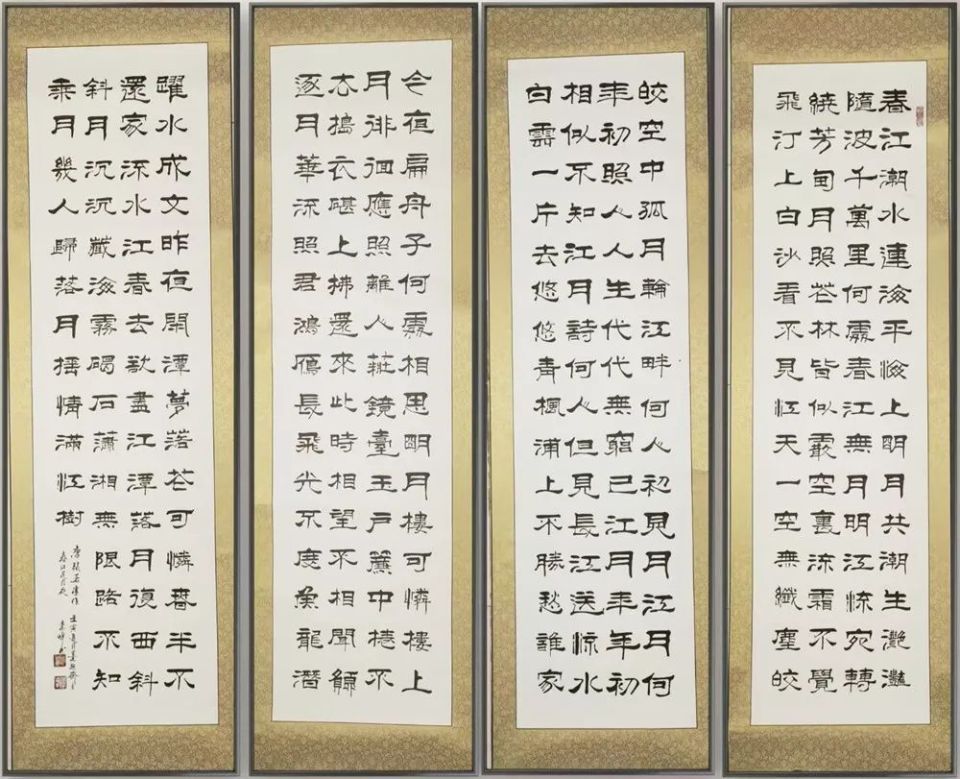 春江潮水連海平海上明月共潮生灩灩
隨波千萬里何處春江無月明江流宛轉
繞芳甸月照花林皆似霰空裏流霜不覺
飛汀上白沙看不見江天一空無纖塵皎
皎空中孤月輪江畔何人初見月江月何
年初照人人生代代無窮已江月年年初
相似不知江月詩何人但見長江送流水
白雲一片去悠悠青楓浦上不勝愁誰家
今夜扁舟子何處相思明月樓可憐樓上
月徘徊應照離人妝鏡臺玉戶簾中捲不
去搗衣碪上拂還來此時相望不相聞願
逐月華流照君鴻雁長飛光不度魚龍潛
躍水成文昨夜閑潭夢落花可憐春半不
還家流水江春去欲盡江潭落月復西斜
斜月沉沉藏海霧碣石瀟湘無限路不知
乘月幾人歸落月搖情滿江樹
唐張若虛作
春江花月夜